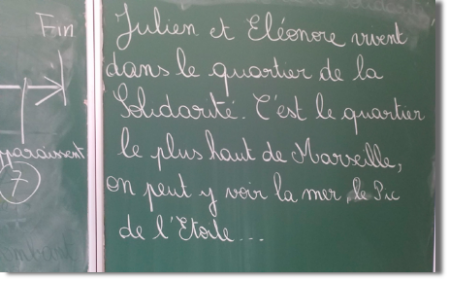 Fin
pparaissent
7
Julien et Eléonore vivent
dans le quartier de la
Solidarité. C'est le quartier
le plus haut de Marseille,
on peut y voir la mer, le Pic
de l'Etoile...